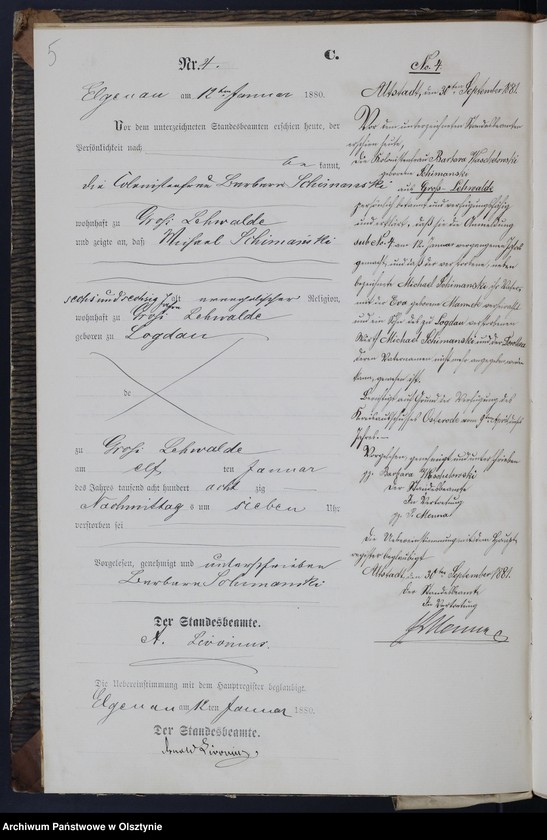 5
C.
Nr. 4.
Elgenau am 12ten Januar 1880.
Vor dem unterzeichneten Standesbeamten erschien heute, der
Persönlichkeit nach
be kannt,
die Colonistenfrau Barbara Schimanski
wohnhaft zu Groß Lehwalde
und zeigte an, daß Michael Schimanski
sechs und sechzig Jahre alt evangelischer Religion,
wohnhaft zu Groß Lehwalde
geboren zu Logdau
de
zu Groß Lehwalde
am elf ten Januar
des Jahres tausend acht hundert acht zig
Nachmittag s um sieben Uhr
verstorben sei
Vorgelesen, genehmigt und unterschrieben
Barbara Schimanski
Der Standesbeamte.
A. Livonius.
Die Uebereinstimmung mit dem Hauptregister beglaubigt.
Elgenau am 12ten Januar 1880.
Der Standesbeamte.
Arnold Livonius.
No. 4
Altstadt, den 30ten September 1881.
Vor dem unterzeichneten Standesbeamten
erschien heute,
die Kolonistenfrau Barbara
geborene Schimanski
aus Groß-Lehwalde
persönlich bekannt und
und erklärt, daß sie die Anmeldung
sub No. 4 am 12 Januar vergangenen Jahres
gemacht, und daß der verstorbene, neben
bezeichnete Michael Schimanski
mit der Eva geborene verheirathet
und ein Sohn des zu Logdau verstorbenen
Wirth Michael Schimanski und der
deren Vatername nicht mehr angegeben werden
kann, gewesen ist.
Berichtigt auf Grund der Verfügung des
Kreisausschusses Osterode vom
Jahres.
Vorgelesen, genehmigt und unterschrieben
gz. Barbara
Der Standesbeamte
In Vertretung
gz.
Die Uebereinstimmung mit dem Haupt-
register beglaubigt
Altstadt, den 30ten September 1881.
Der Standesbeamte
In Vertretung
Archiwum Państwowe w Olsztynie